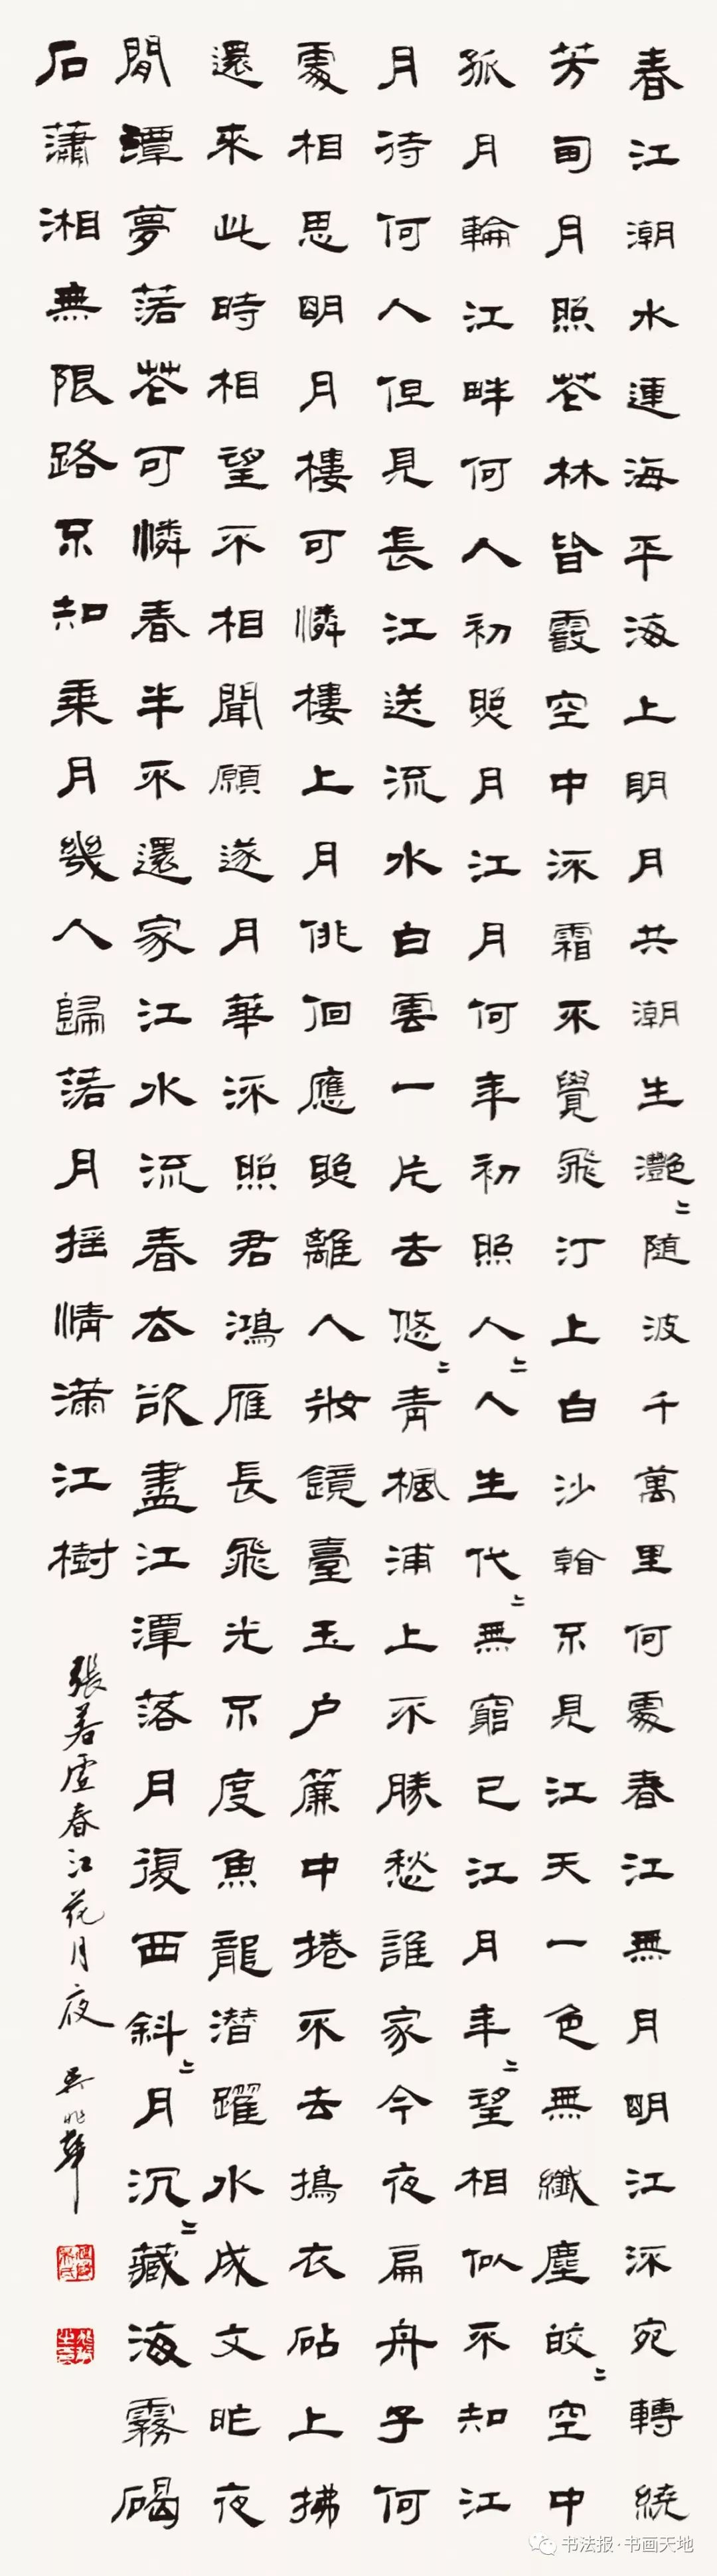 春江潮水連海平海上明月共潮生灧〻随波千萬里何處春江無月明江流宛轉繞
芳甸月照花林皆霰空中流霜不覺飛汀上白沙看不見江天一色無纖塵皎〻空中
孤月輪江畔何人初照月江月何年初照人〻人生代〻無窮已江月年〻望相似不知江
月待何人但見長江送流水白雲一片去悠〻青楓浦上不勝愁誰家今夜扁舟子何
處相思明月樓可憐樓上月俳佪應照離人妝鏡臺玉户簾中捲不去搗衣砧上拂
還來此時相望不相聞願遂月華流照君鴻雁長飛光不度魚龍潜躍水成文昨夜
閒潭夢落花可憐春半不還家江水流春去欲盡江潭落月復西斜〻月沉〻藏海霧碣
石瀟湘無限路不知乘月幾人歸落月摇情滿江樹
張若虛春江花月夜 吴兆華
书法报·书画天地